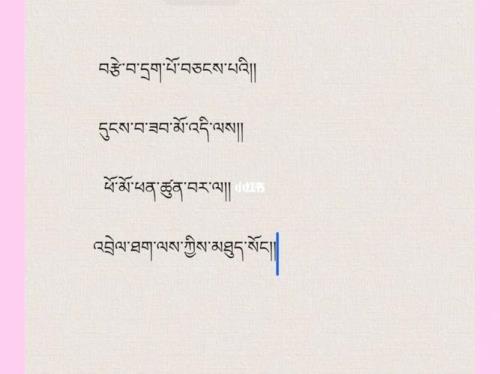 བརྩེ་བ་དྲག་པོ་བཅངས་པའི།།
དུངས་བ་ཟབ་མོ་འདི་ལས།།
ཕོ་མོ་ཕན་ཚུན་བར་ལ།།
小红书
འབྲེལ་ཐག་ལས་ཀྱིས་མཐུད་སོང།།